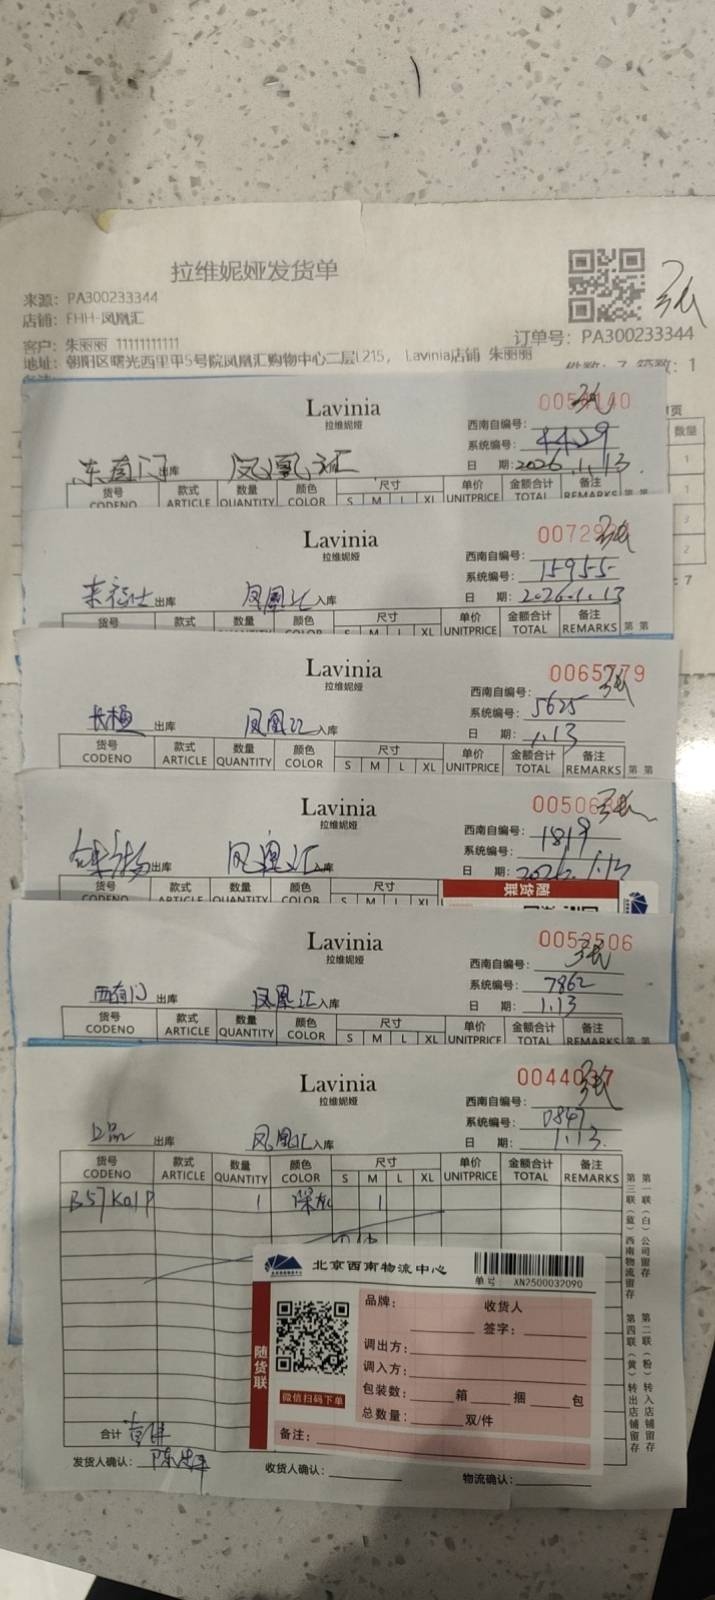 拉维妮娅发货单
来源: PA300233344
店铺: FHH-凤凰汇
订单号: PA300233344
客户: 朱丽丽 11111111111
地址: 朝阳区曙光西里甲5号院凤凰汇购物中心二层L215, Lavinia店铺 朱丽丽
件数: 7 箱数: 1
数量
1
1
3
2
: 7
Lavinia
拉维妮娅
西南自编号:
系统编号: 4429
东直门 出库 凤凰汇
日 期: 2026.1.13
货号 款式 数量 颜色 尺寸 单价 金额合计 备注
CODENO ARTICLE QUANTITY COLOR S M L XL UNITPRICE TOTAL REMARKS
Lavinia
拉维妮娅
西南自编号:
系统编号: 15955
来福士 出库 凤凰汇 入库
日 期: 2026.1.13
货号 款式 数量 颜色 尺寸 单价 金额合计 备注
COLOR S M L XL UNITPRICE TOTAL REMARKS
Lavinia
拉维妮娅
西南自编号:
系统编号: 5625
长楹 出库 凤凰汇 入库
日 期: 1.13
货号 款式 数量 颜色 尺寸 单价 金额合计 备注
CODENO ARTICLE QUANTITY COLOR S M L XL UNITPRICE TOTAL REMARKS
Lavinia
拉维妮娅
西南自编号:
系统编号: 1819
出库 凤凰汇 入库
日 期: 2026.1.13
货号 款式 数量 颜色 尺寸
CODENO ARTICLE QUANTITY COLOR S M L XL
随货联
Lavinia
拉维妮娅
0052506
西南自编号:
系统编号: 7862
西直门 出库 凤凰汇 入库
日 期: 1.13
货号 款式 数量 颜色 尺寸 单价 金额合计 备注
CODENO ARTICLE QUANTITY COLOR S M L XL UNITPRICE TOTAL REMARKS
Lavinia
拉维妮娅
西南自编号:
系统编号: 0847
出库 凤凰汇 入库
日 期: 1.13.
货号 款式 数量 颜色 尺寸 单价 金额合计 备注
CODENO ARTICLE QUANTITY COLOR S M L XL UNITPRICE TOTAL REMARKS
B57K01P 1 1
第一联(白)公司留存
第二联(粉)转入店铺留存
第三联(蓝)西南物流留存
第四联(黄)转出店铺留存
北京西南物流中心
单号 XN2500032090
随货联
微信扫码下单
品牌: 收货人
签字:
调出方:
调入方:
包装数: 箱 捆 包
总数量: 双/件
备注:
合计 壹件
发货人确认: 收货人确认: 物流确认: